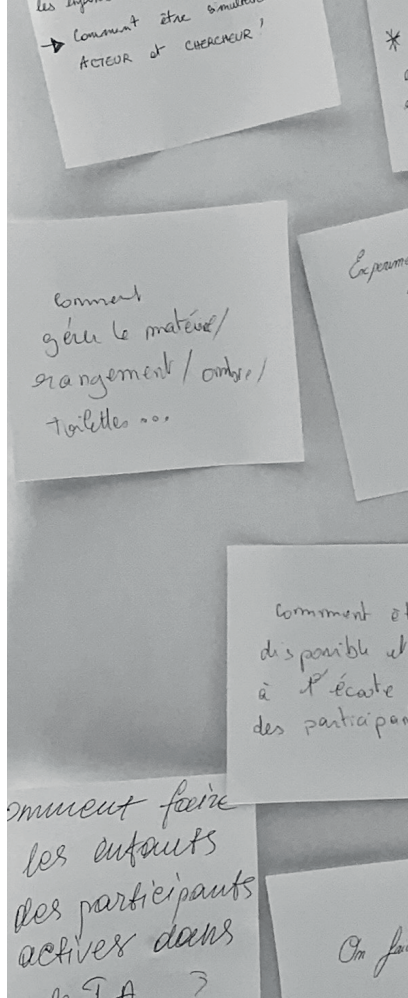 → Comment être
ACTEUR et CHERCHEUR!
*
Comment
gérer le matériel/
rangement / ombre /
toilettes ...
Comment
disponible et
à l'écoute
des participan
omment faire
les enfants
des participants
actives dans
?
On